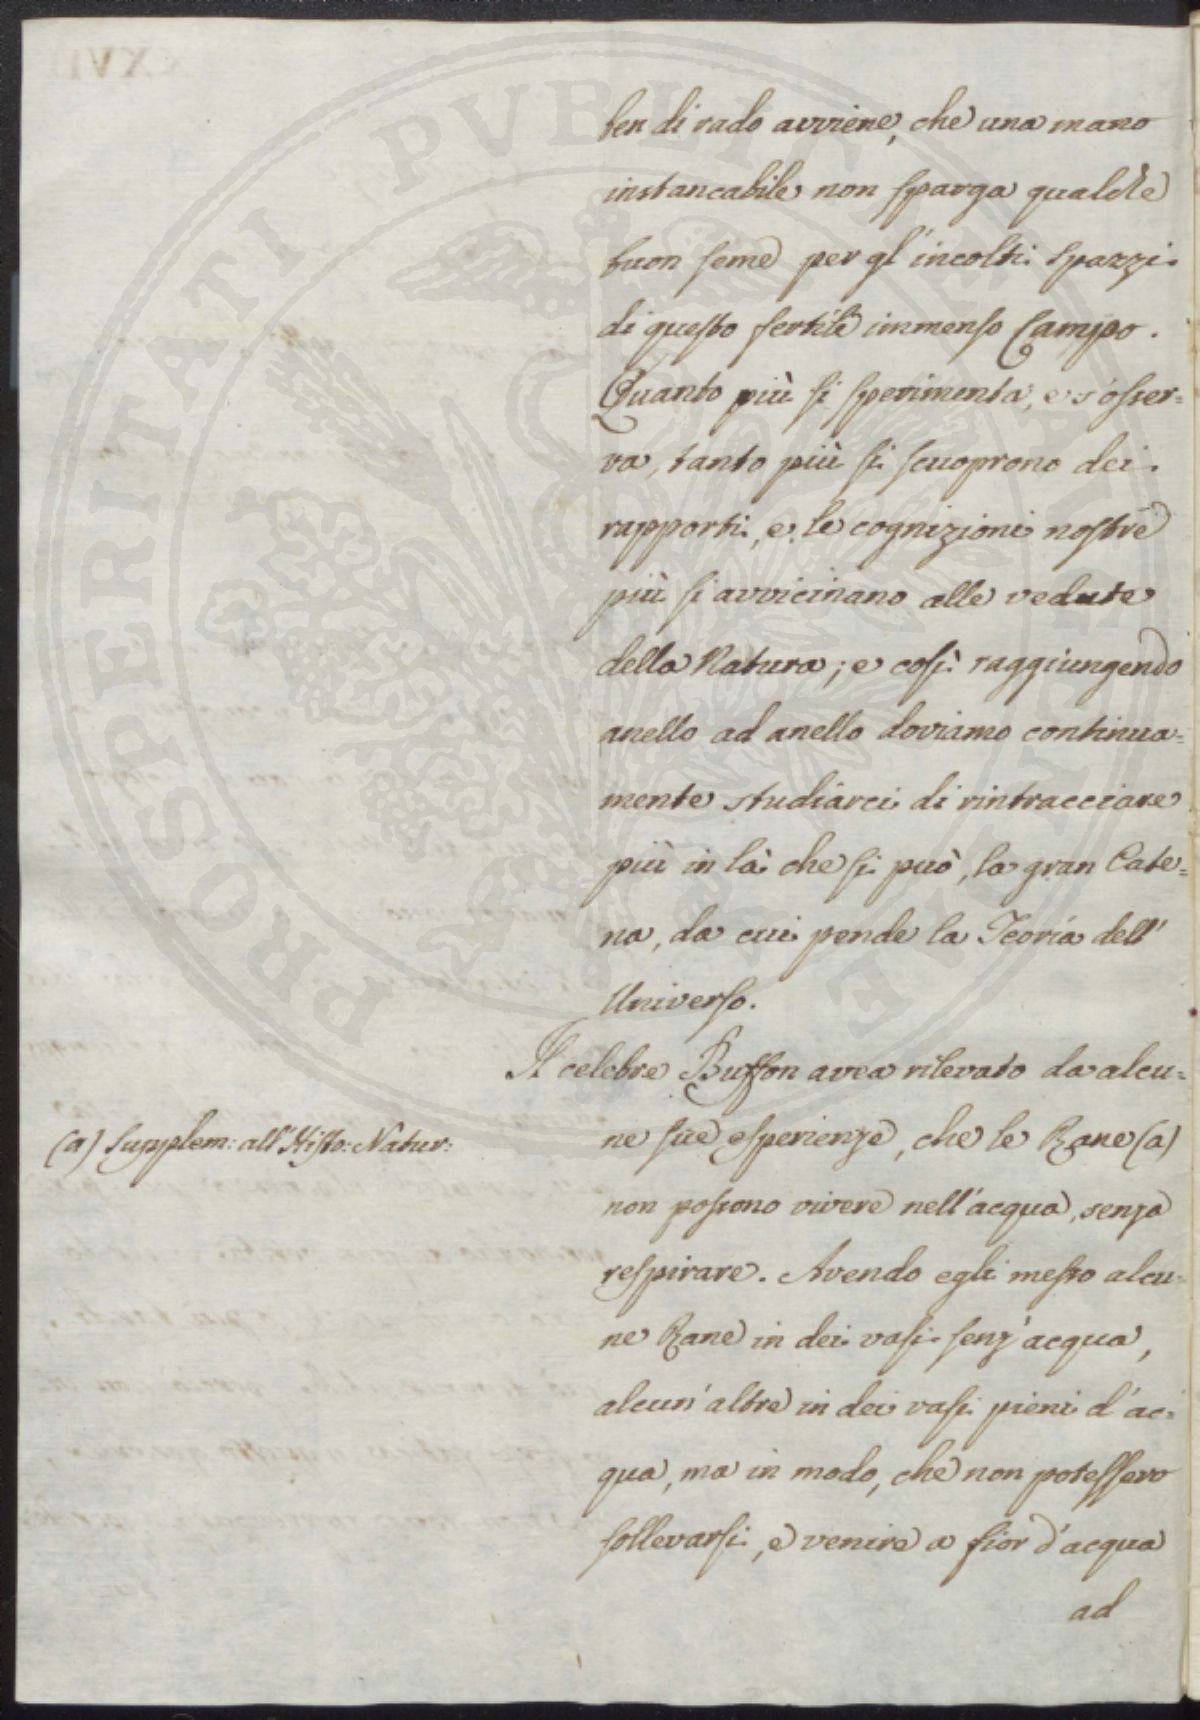 ben di rado avviene, che una mano
instancabile non sparga qualche
buon seme per gl'incolti spazzi
di questo fertile immenso Campo.
Quanto più si sperimenta, e s'osser=
va, tanto più si scuoprono dei
rapporti, e le cognizioni nostre
più si avvicinano alle vedute
della Natura; e così raggiungendo
anello ad anello doviamo continua=
mente studiarci di rintracciare
più in là che si può, la gran Cate=
na, da cui pende la Teoria dell'
Universo.
Il celebre Buffon avea rilevato da alcu=
ne sue esperienze, che le Rane (a)
(a) Supplem: all'Histo: Natur:
non possono vivere nell'acqua, senza
respirare. Avendo egli messo alcu=
ne Rane in dei vasi senz'acqua,
alcun'altre in dei vasi pieni d'ac=
qua, ma in modo, che non potessero
sollevarsi, e venire a fior d'acqua
ad
PROSPERITATI PUBLICAE AUGENDAE